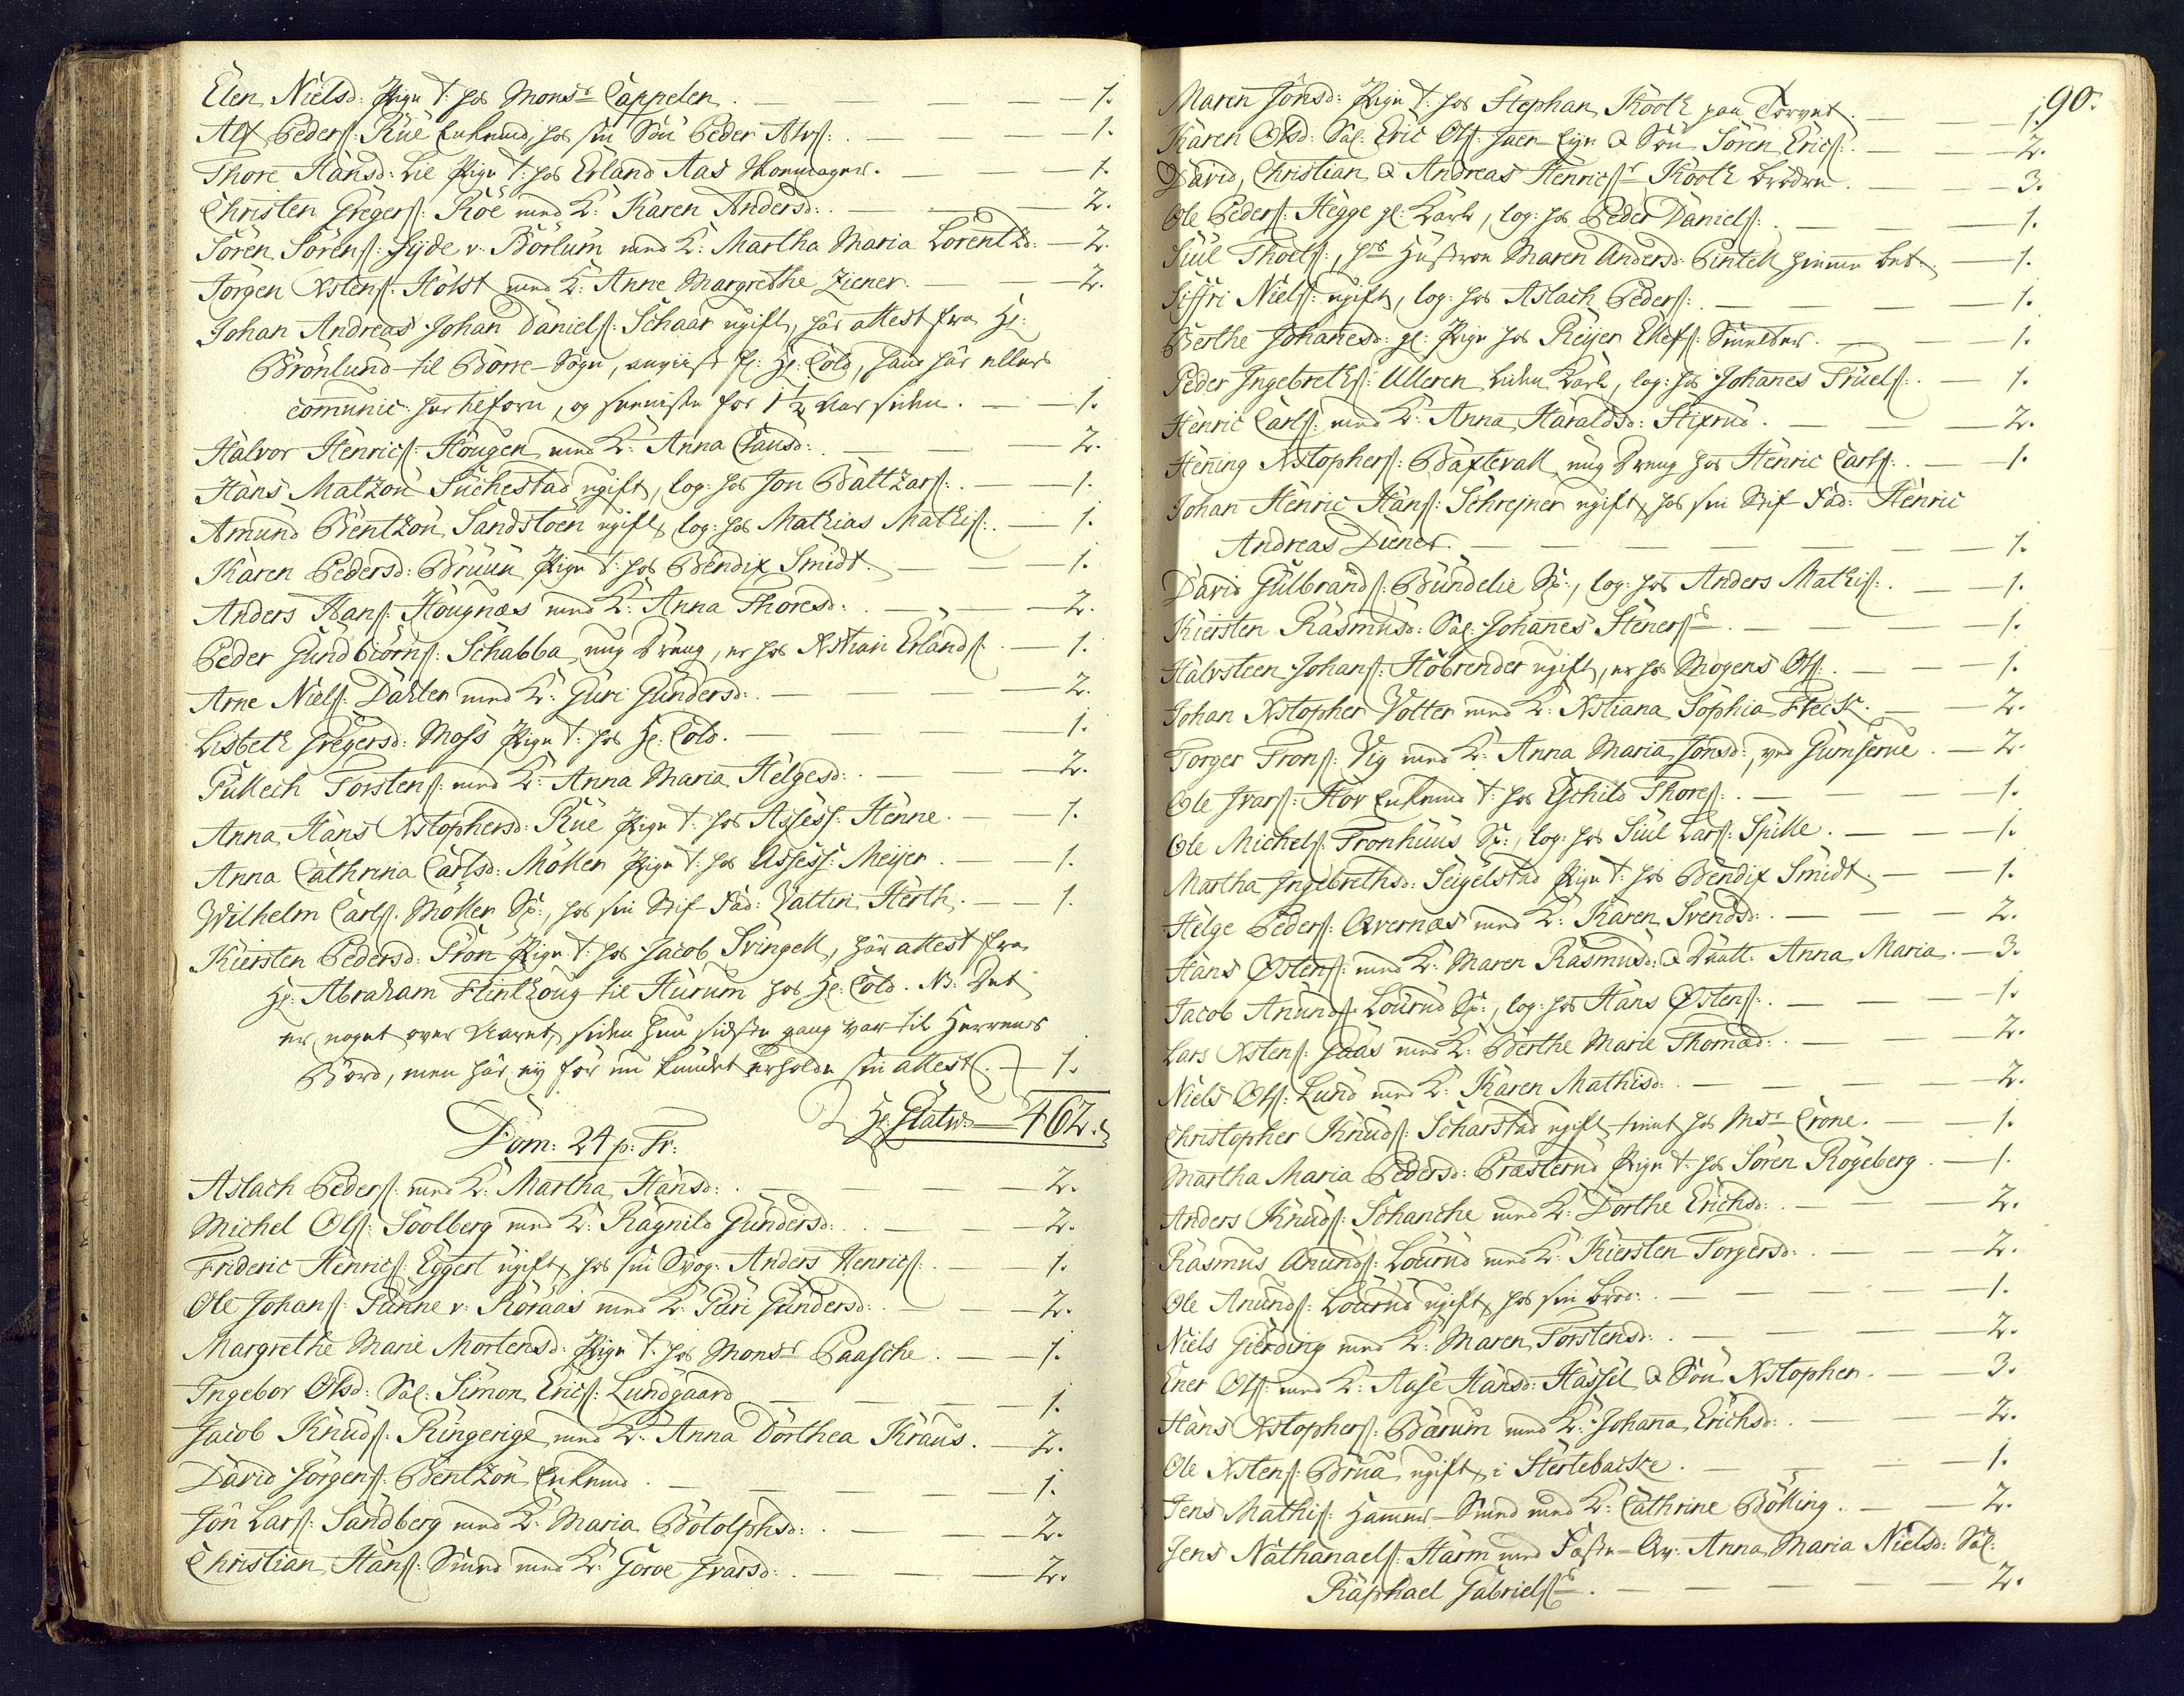 Elen Nielsd: Pige t: hos Monsr Cappelen. — 1.
Alf Peders: Rüe Enkemd, hos sin Sön Peder Alfs: — 1.
Thore Hansd: Lie Pige t: hos Erland Aas — 1.
Christen Gregers: Röe med K: Karen Andersd: — 2.
Sören Sörens: Gyde v. Börlum med K: Martha Maria Lorentzd: — 2.
Jörgen Xstens: Holst med K: Anne Margrethe Ziener. — 2.
Johan Andreas Johan Daniels: Schaar ugift, har attest fra Hr:
Brönlund til Borre-Sogn, anviist hr: Hr: Cold, hand har ellers
communic: her tilforn, og seeniste for 1½ Aar siden. — 1.
Halvor Henrics: Hougen med K: Anna Clausd: — 2.
Hans Matzön Suchestad ugift, log: hos Jon Baltzars: — 1.
Amund Bentzön Sandstöen ugift, log: hos Mathias Mathis: — 1.
Karen Pedersd: Brüün Pige t: hos Bendix Smidt. — 1.
Anders Hans: Hougnæs med K: Anna Thoresd: — 2.
Peder Gundbiörns: Schabba ung Dreng, er hos Xstian Erlands: — 1.
Arne Niels: Dahlen med K: Guri Gundersd: — 2.
Lisbeth Gregersd: Moss Pige t: hos Hr: Cold. — 1.
Tullech Torstens: med K: Anna Maria Helgesd: — 2.
Anna Hans Xstophersd: Rüe Pige t: hos Assess: Henne. — 1.
Anna Cathrina Carlsd: Möller Pige t: hos Assess: Meyer. — 1.
Wilhelm Carls: Möller Sp:, hos sin Stif-Fad: Vattin Herth. — 1.
Kiersten Pedersd: Tron Pige t: hos Jacob Svingell, har attest fra
Hr: Abraham Flinthoug til Hurum hos Hr: Cold. NB. Det
er noget over Aaret, siden hun sidste gang var til Herrens
Bord, men har ej för nu kundet erholde sin attest. — 1.
Hr: Glatv: — 462.
Dom: 24 p: Tr:
Aslach Peders: med K: Martha Hansd: — 2.
Michel Ols: Soolberg med K: Ragnild Gundersd: — 2.
Frideric Henrics: Eggert ugift, hos sin Svog: Anders Henrics: — 1.
Ole Johans: Tanne v. Röraas med K: Guri Gundersd: — 2.
Margrethe Marie Mortensd: Pige t: hos Monsr Paasche. — 1.
Ingebor Olsd: Sal: Simon Erics: Lundgaard — 1.
Jacob Knuds: Ringerige med K: Anna Dorthea Kraus. — 2.
David Jörgens: Bentzön Enkemd. — 1.
Jon Lars: Sandberg med K: Maria Botolphsd: — 2.
Christian Hans: Smed med K: Goroe Ivarsd: — 2.
90.
Maren Jonsd: Pige t: hos Stephan Kooth paa Torvet. — 1.
Karen Olsd: Sal: Eric Ols: & Sön Sören Erics: — 2.
David, Christian & Andreas Henricsr Kooth Brödre. — 3.
Ole Peders: Hegge gl: Karl, log: hos Peder Daniels: — 1.
Siul Thoels:, Hustroe Maren Andersd: Pintell — 1.
Siffri Niels: ugift, log: hos Aslach Peders: — 1.
Berthe Johanesd: gl: Pige hos Reyer Elefs: — 1.
Peder Ingebreths: Ulleren liden Karl, log: hos Johanes Truels: — 1.
Henric Carls: med K: Anna Haraldsd: Stixrud. — 2.
Hening Xstophers: Baxterall ung Dreng hos Henric Carls: — 1.
Johan Henric Hans: Schrejner ugift, hos sin Stif-Fad: Henric
Andreas Diener. — 1.
David Gulbrands: Bundelie Sp:, log: hos Anders Mathis: — 1.
Kiersten Rasmusd: Sal: Johanes Steners: — 1.
Halvsteen Johans: Hobrender ugift, er hos Mogens Ols: — 1.
Johan Xstopher Votter med K: Xstiana Sophia Fleisc. — 2.
Torger Trons: Vig med K: Anna Maria Jonsd:, ved Gumserue. — 2.
Ole Ivars: Hov Enkemd t: hos Eschild Thores: — 1.
Ole Michels: Tronhuus Sp:, log: hos Siul Lars: Spille. — 1.
Martha Ingebrethsd: Seigelstad Pige t: hos Bendix Smidt. — 1.
Helge Peders: Qvernæs med K: Karen Svendsd: — 2.
Hans Östens: med K: Maren Rasmusd: & Daatt: Anna Maria. — 3.
Jacob Anunds: Lourud Sp:, log: hos Hans Östens: — 1.
Lars Xstens: Gaas med K: Berthe Marie Thomad: — 2.
Niels Ols: Lund med K: Karen Mathisd: — 2.
Christopher Knuds: Scharstad ugift tient hos Msr Crone. — 1.
Martha Maria Pedersd: Præsterud Pige t: hos Sören Rögeberg. — 1.
Anders Knuds: Schanche med K: Dorthe Erichsd: — 2.
Rasmus Anunds: Lourud med K: Kiersten Torgersd: — 2.
Ole Anunds: Lourud ugift, hos sin Brod: — 1.
Niels Gierding med K: Maren Torstensd: — 2.
Ener Ols: med K: Aase Hansd: Hassel & Sön Xstopher. — 3.
Hans Xstophers: Bærum med K: Johana Erichsd: — 2.
Ole Xstens: Brua ugift, i Stertebacke. — 1.
Jens Mathis: Hammer-Smed med K: Cathrine Bölling. — 2.
Jens Nathanaels: Harm med Fæste-Qv: Anna Maria Nielsd: Sal:
Raphael Gabriels: — 2.